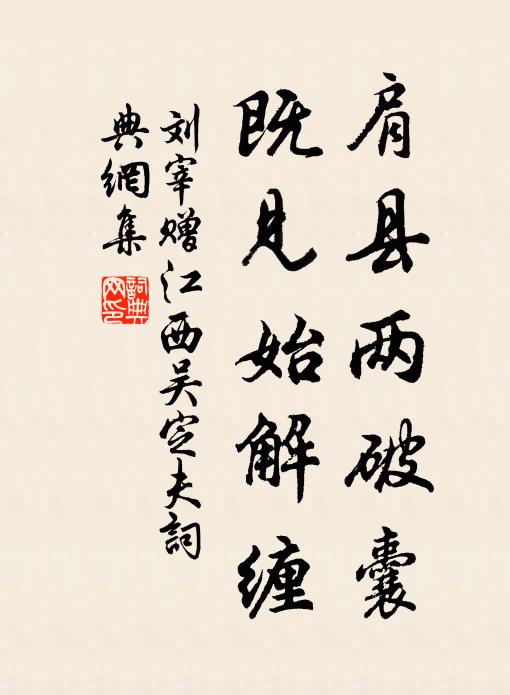 肩县两破囊
既见始解缠
刘宰赠江西吴定夫词
典網集
詞典
网印